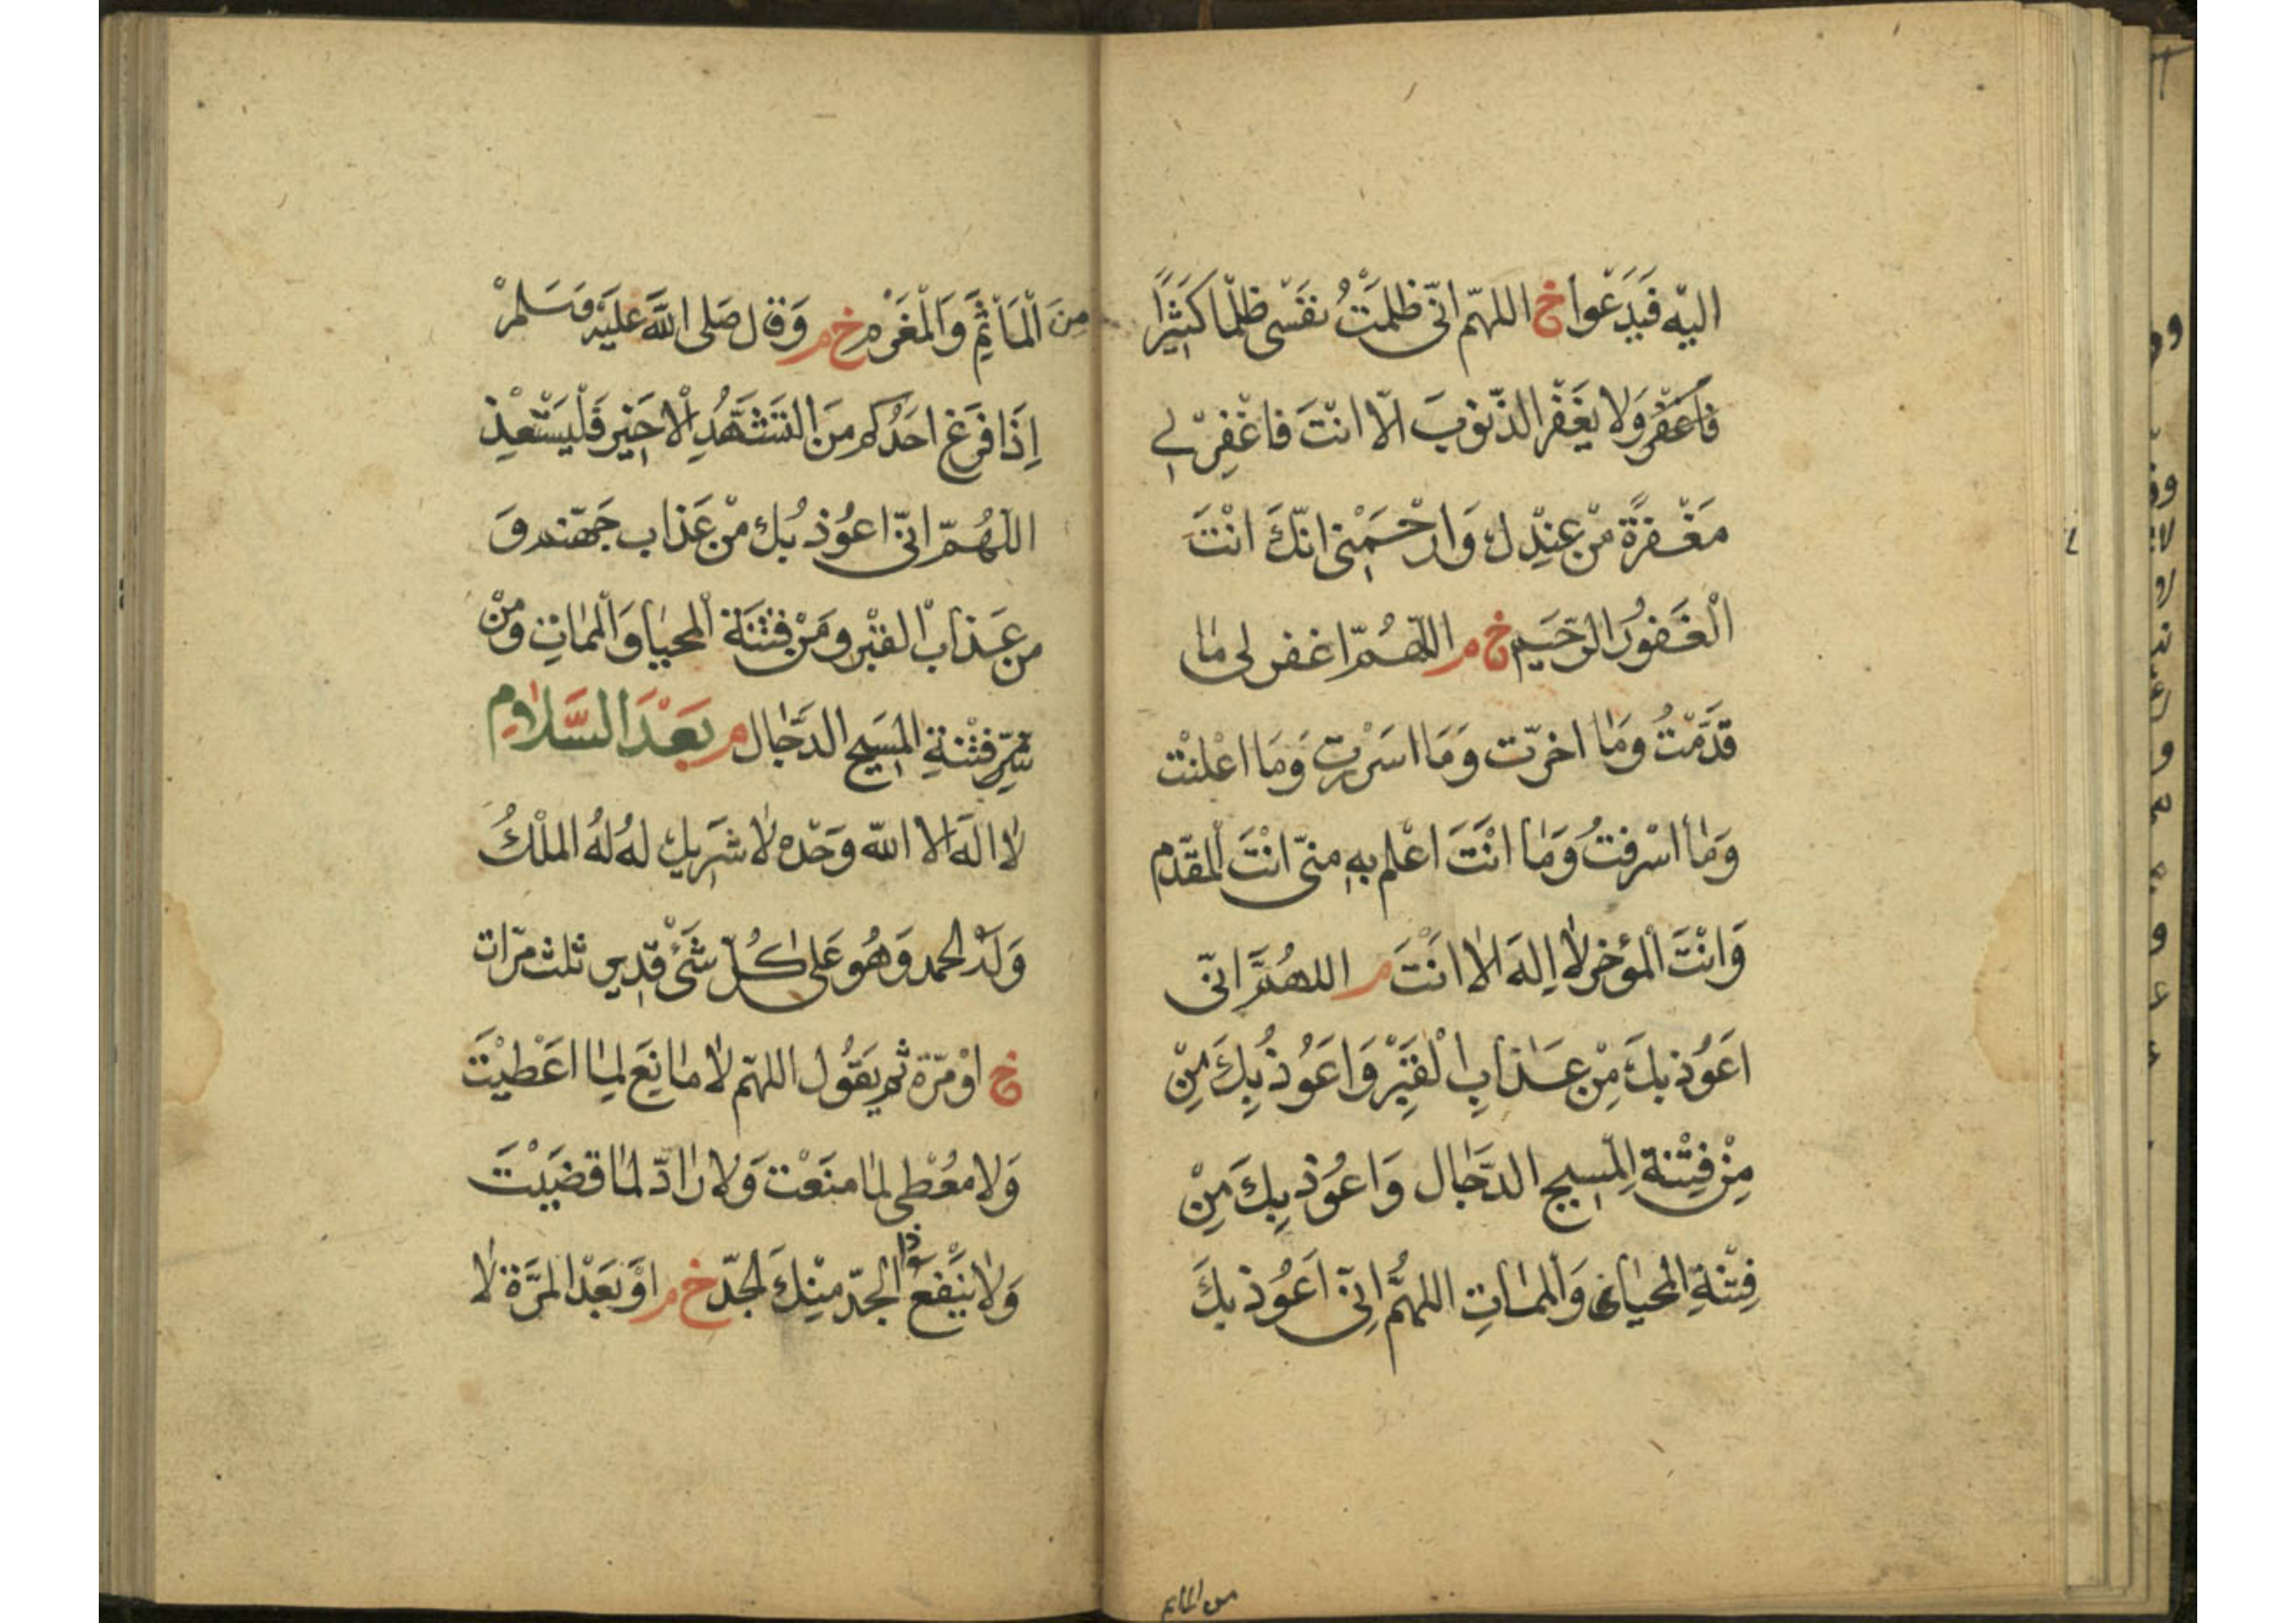 اليّه فَيَدْعوا خ اللهمّ انّى ظلمْتُ نفَسْى ظلمّا كَثيْرًا
فاغفر وَلا يغَفْر الذّنوبَ الّا انتَ فاغْفِرْ لي
مَغْفرَةً منْ عِنْدِك وَارْحَمْنِى انّكَ انْتَ
الْغَفوُر الرّحَيم خ م اللّهُمّ اغفر لى مٰا
قدَّمْتُ ومَٰا اخرّت وَمَا اسَرْرت وَمَا اعْلنْت
وَمٰا اسْرفتُ وَمٰا انْتَ اعْلم بهِ منىّ انْتَ المْقدّم
وَانْتَ المْؤخر لاٰ اِلهَ الاٰ انْتَ م اللهُمَّ انىّ
اعَوُذ بكَ مِنْ عَذابِ الْقبَرِْ وَاعَوُذُ بِكَ مِنْ
مِنْ فِتْنَةِ المْسِيح الدّجَٰال وَاعوُذ بِكَ مِنْ
فِتْنةِ المحْيٰا وَالممٰاتِ اللهمَُّ اِنىّ اَعَوُذ بكَ
من الماثم
مِنَ الْمَأثَمِ وَالمْغَرْم خ م وَقال صَلى اللهَّ عليَْه وَسَلمْ
اِذَا فرَغ احَدُكم مِنَ التشَهَُّدِ الْاخِيْر فَلْيَسْتَعْذِ
اللّهُمّ انىّ اعوُذ بُك منْ عَذاب جَهنّم وَ
من عَذابْ القبْر وَمنْ فِتْنَة المْحيٰا وَالممٰاتِ ومنْ
شرِّ فتْنةِ المسَيح الدجَّٰال م بَعْدَ السَّلاٰمِ
لاٰ الهَ الا اللّه وَحْدَه لاٰ شَرِيك لهُ لهُ الملْكُ
وَلهَُ الحمد وَهُو عَلىٰ كُلّ شَىْءٍ قدِير ثلث مرّات
خ اوْ مرّة ثم يَقوُل اللهمّ لاٰ مٰانِعَ لمِٰا اعَْطيْتَ
وَلا مُعْطى لمٰا منَعْت وَلا رٰادّ لمٰا قضَيْتَ
وَلاٰ يَنْفعُ ذا الْجدّ منْكَ الجدّ خ م اوْ بَعْد المرَّة لاٰ